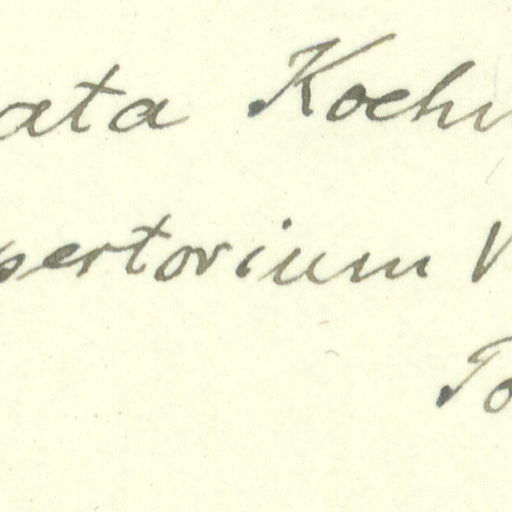 ata Koehn
pertorium V
To